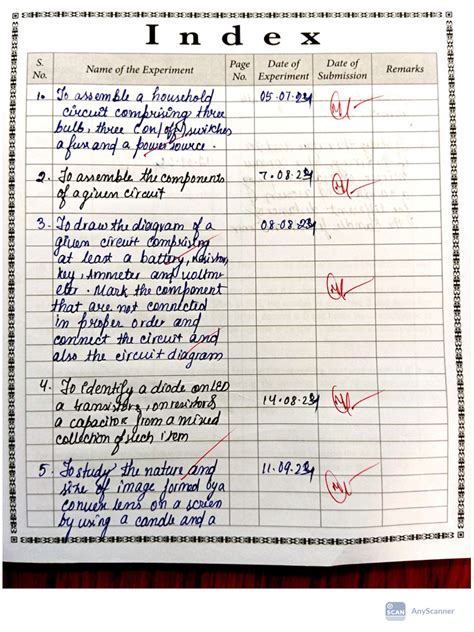 Index
S. No. Name of the Experiment Page No. Date of Experiment Date of Submission Remarks
1. To assemble a household 05.07.24
circuit comprising three
bulb, three (on/off) switches
a fuse and a power source.
2. To assemble the components 7.08.24
of a given circuit
3. To draw the diagram of a 08.08.24
given circuit comprising
at least a battery,
key, Ammeter and voltm-
etr. Mark the component
that are not connected
in proper order and
connect the circuit and
also the circuit diagram
4. To identify a diode an LED 14.08.24
a transistors, on resistors
a capacitor from a mixed
collection of such item
5. To study the nature and 11.09.24
size of image formed by a
convex lens on a screen
by using a candle and a
SCAN AnyScanner